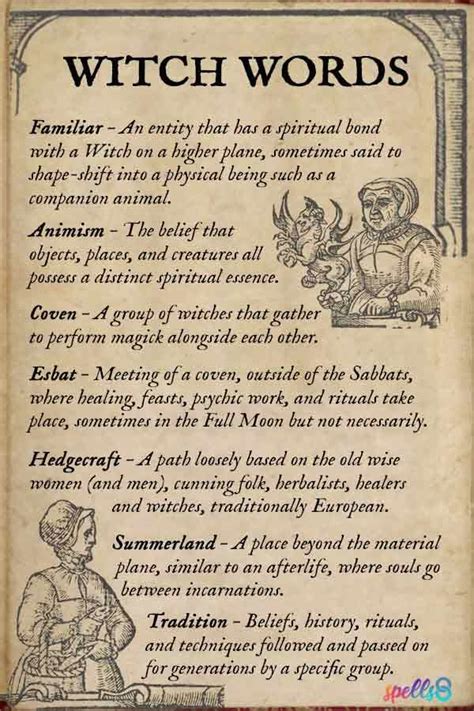 WITCH WORDS
Familiar – An entity that has a spiritual bond
with a Witch on a higher plane, sometimes said to
shape-shift into a physical being such as a
companion animal.
Animism – The belief that
objects, places, and creatures all
possess a distinct spiritual essence.
Coven – A group of witches that gather
to perform magick alongside each other.
Esbat – Meeting of a coven, outside of the Sabbats,
where healing, feasts, psychic work, and rituals take
place, sometimes in the Full Moon but not necessarily.
Hedgecraft – A path loosely based on the old wise
women (and men), cunning folk, herbalists, healers
and witches, traditionally European.
Summerland – A place beyond the material
plane, similar to an afterlife, where souls go
between incarnations.
Tradition – Beliefs, history, rituals,
and techniques followed and passed on
for generations by a specific group.
spells8